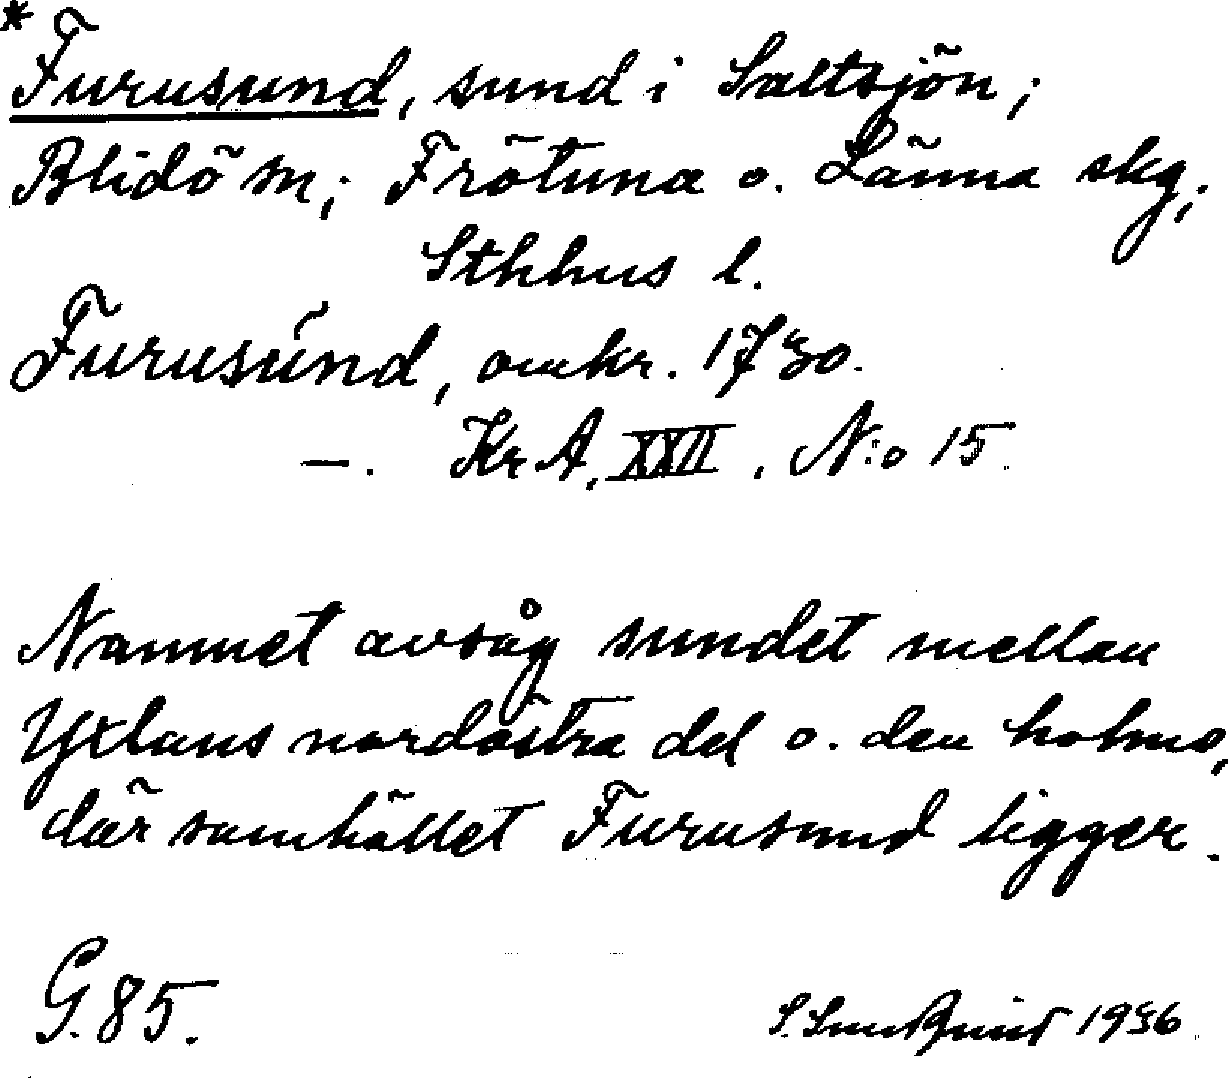 *Furusund, sund i Saltsjön;
Blidö sn; Frötuna o. Länna skg;
Sthhus l.
Furusund, omkr. 1730.
—. KrA, XXII, N:o 15.
Namnet avsåg sundet mellan
Yxlans nordöstra del o. den holme,
där samhället Furusund ligger.
G. 85.
1936